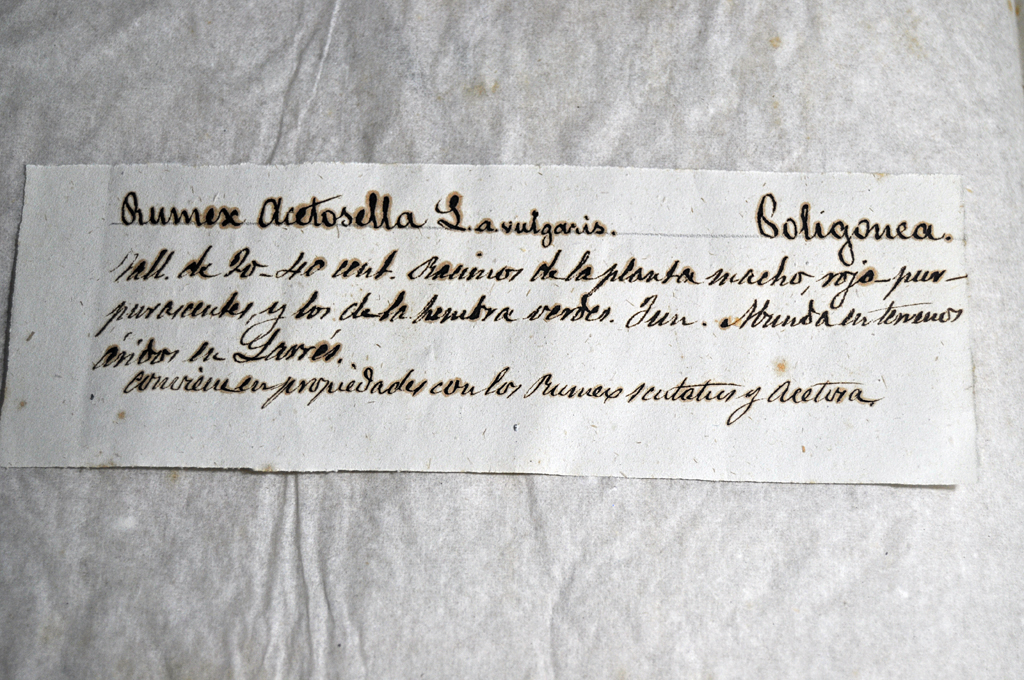 Rumex Acetosella L. a vulgaris. Poligonea.
Tall. de 20-40 cent. Racimos de la planta macho, rojo-pur-
purascentes, y los de la hembra verdes. Jun. Abunda en terrenos
áridos en Larrés.
Conviene en propiedades con los Rumex scutatus y Acetosa.